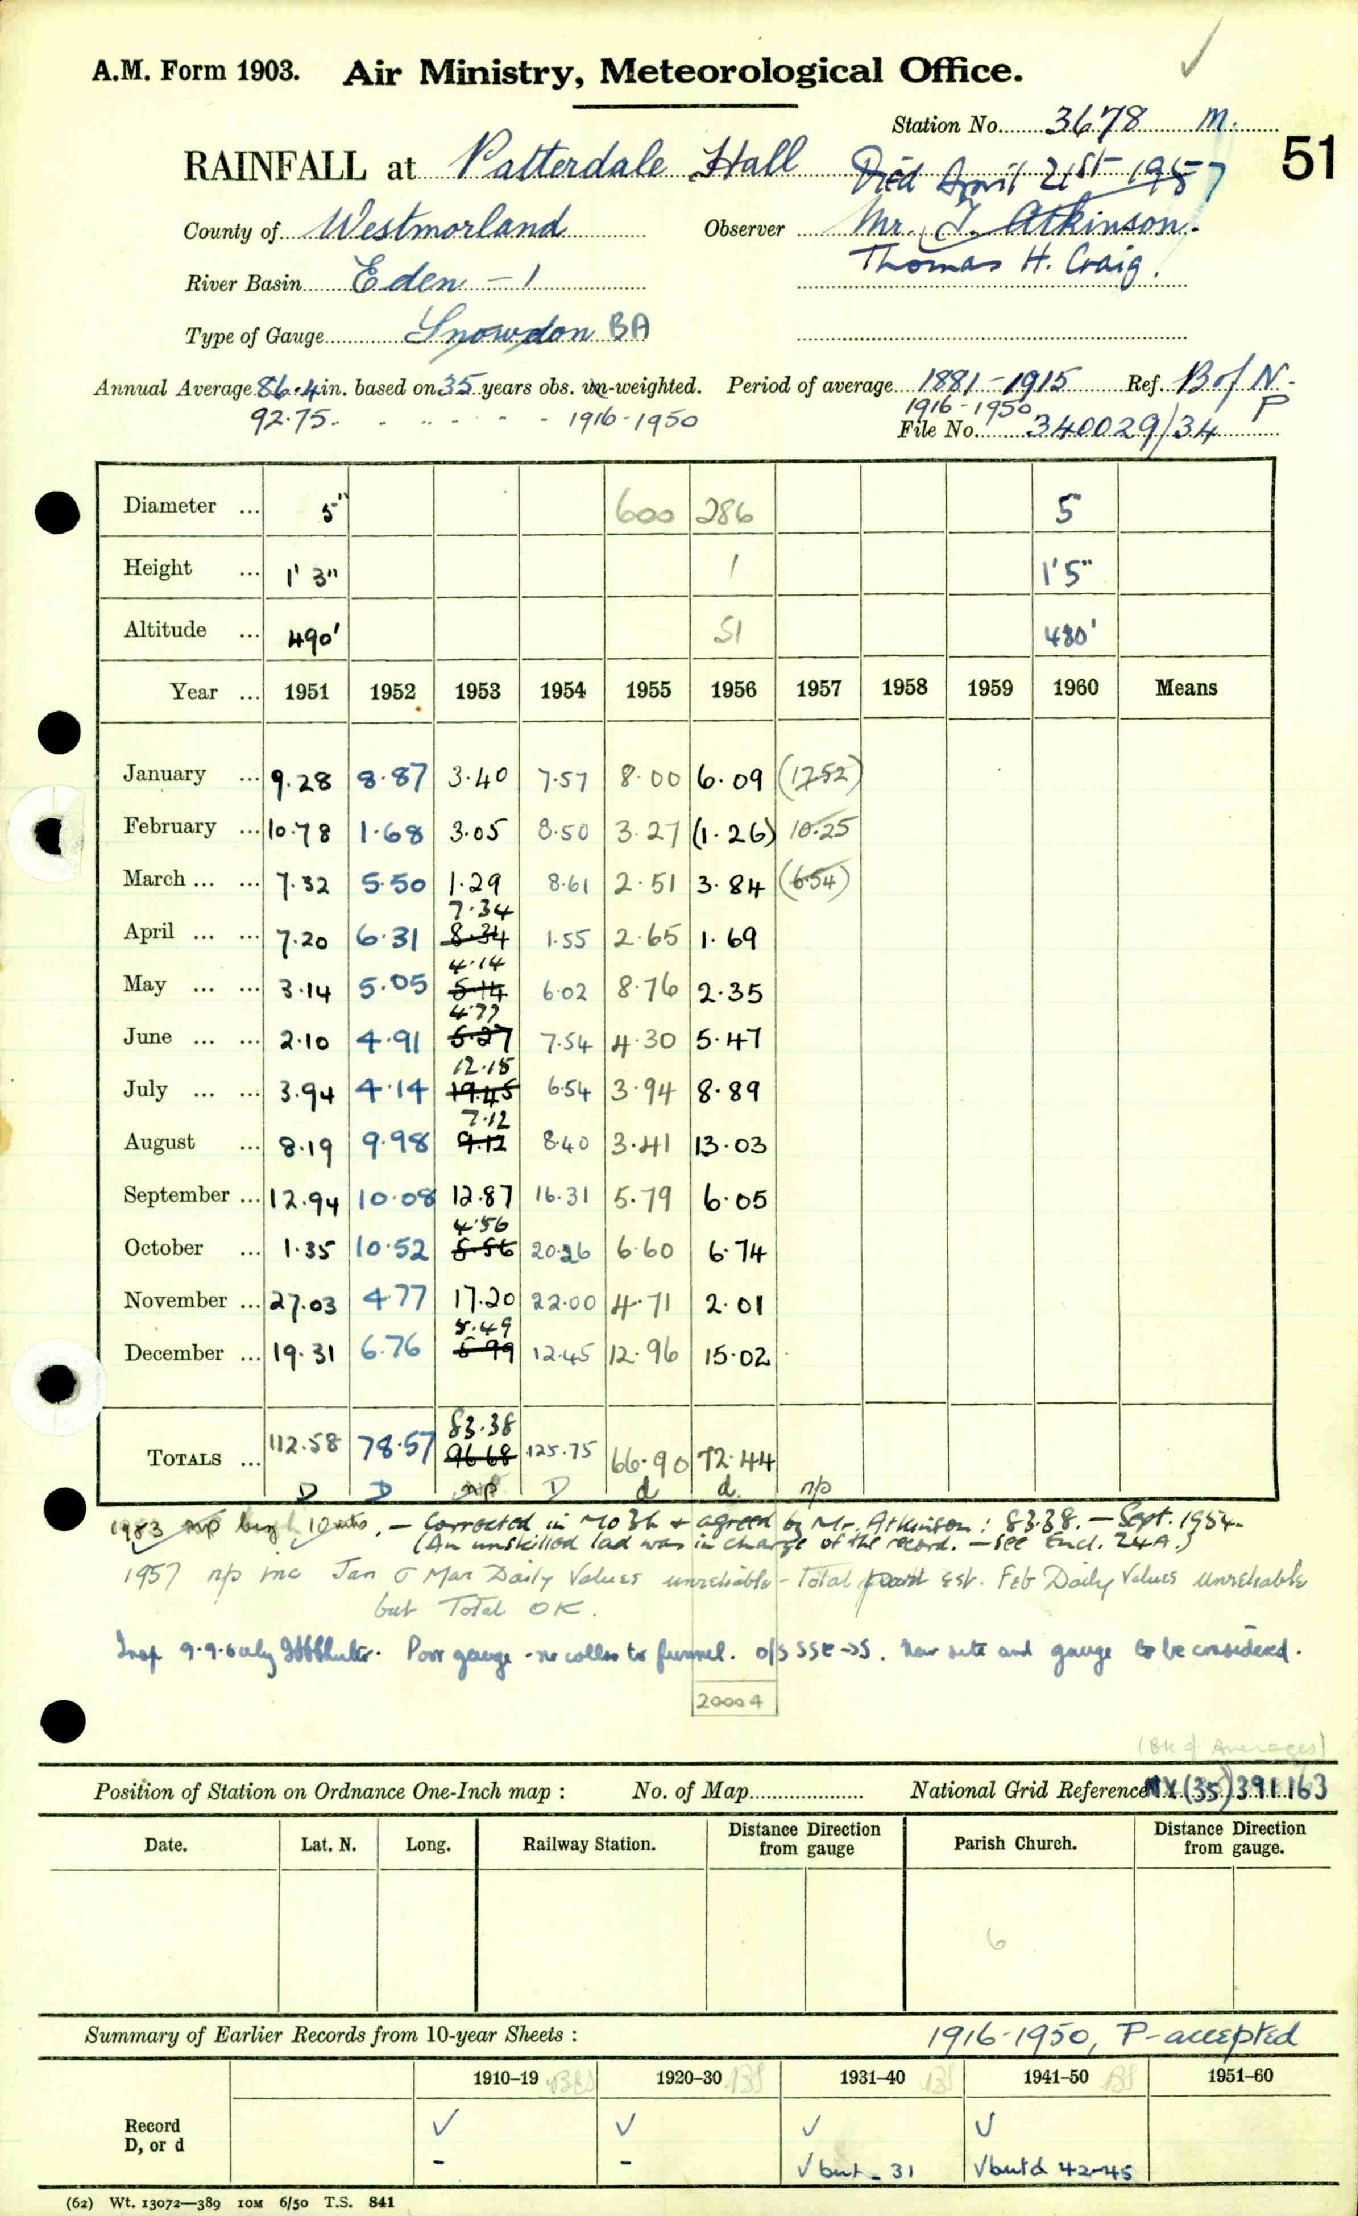 A.M. Form 1903. Air Ministry, Meteorological Office.
Station No. 3678 M.
51
RAINFALL at Patterdale Hall
Died April 21st 1957
County of Westmorland Observer Mr. T. Atkinson.
Thomas H. Craig.
River Basin Eden - 1
Type of Gauge Snowdon BA
Annual Average 86.4 in. based on 35 years obs. un-weighted. Period of average 1881-1915 Ref. B of N-P
92.75 1916-1950 1916-1950
File No. 340029/34
Diameter ... 5" 600 286 5
Height ... 1' 3" 1 1'5"
Altitude ... 490' 51 480'
Year ... 1951 1952 1953 1954 1955 1956 1957 1958 1959 1960 Means
January ... 9.28 8.87 3.40 7.57 8.00 6.09 (17.52)
February ... 10.78 1.68 3.05 8.50 3.27 (1.26) 10.25
March ... ... 7.32 5.50 1.29 8.61 2.51 3.84 (6.54)
7.34
April ... ... 7.20 6.31 8.34 1.55 2.65 1.69
4.14
May ... ... 3.14 5.05 5.14 6.02 8.76 2.35
4.77
June ... ... 2.10 4.91 5.27 7.54 4.30 5.47
12.15
July ... ... 3.94 4.14 19.45 6.54 3.94 8.89
7.12
August ... 8.19 9.98 9.12 8.40 3.41 13.03
September ... 12.94 10.08 12.87 16.31 5.79 6.05
4.56
October ... 1.35 10.52 5.56 20.26 6.60 6.74
November ... 27.03 4.77 17.20 22.00 4.71 2.01
5.49
December ... 19.31 6.76 5.99 12.45 12.96 15.02
83.38
TOTALS ... 112.58 78.57 96.68 125.75 66.90 72.44
D D np D d d. n/p
1953 np - Corrected in MO3b & agreed by Mr. Atkinson: 83.38. - Sept. 1954.
(An unskilled lad was in charge of the record. - See Encl. 24A.)
1957 n/p inc Jan & Mar Daily Values unreliable - Total est. Feb Daily Values unreliable
but Total OK.
Insp 9.9. Poor gauge - no collar to funnel. o/s SSE->S. New site and gauge to be considered.
20004
(Bk of Averages)
Position of Station on Ordnance One-Inch map : No. of Map National Grid Reference NY (35) 391.163
Date. Lat. N. Long. Railway Station. Distance Direction from gauge Parish Church. Distance Direction from gauge.
6
Summary of Earlier Records from 10-year Sheets : 1916-1950, P-accepted
1910-19 1920-30 1931-40 1941-50 1951-60
Record ✓ ✓ ✓ ✓
D, or d - - ✓ but - 31 ✓ but d 42-45
(62) Wt. 13072—389 10M 6/50 T.S. 841